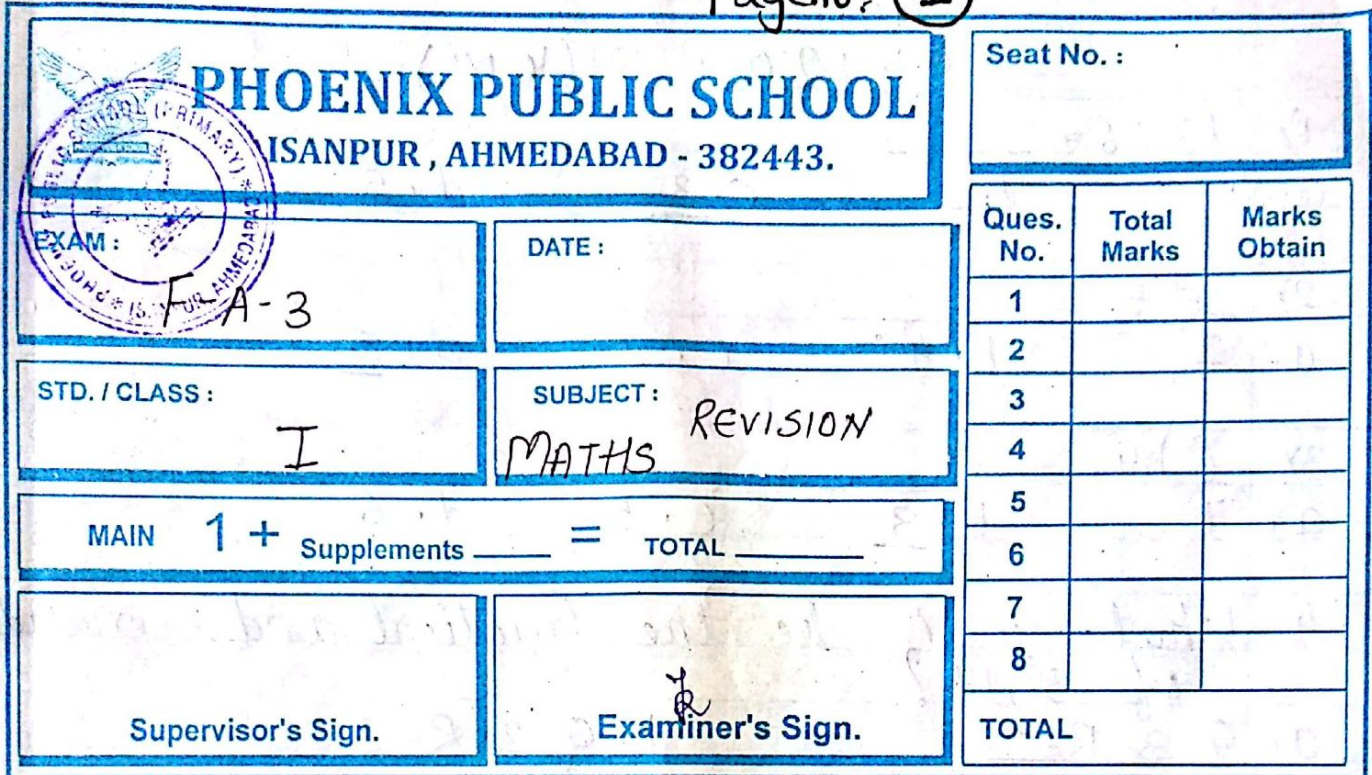 Page No. 1
PHOENIX PUBLIC SCHOOL
ISANPUR , AHMEDABAD - 382443.
(PRIMARY)
AHMEDABAD
EXAM :
F-A-3
DATE :
STD. / CLASS :
I
SUBJECT :
REVISION
MATHS
MAIN 1 + Supplements ____ = TOTAL ________
Supervisor's Sign.
Examiner's Sign.
Seat No. :
Ques. No. Total Marks Marks Obtain
1
2
3
4
5
6
7
8
TOTAL